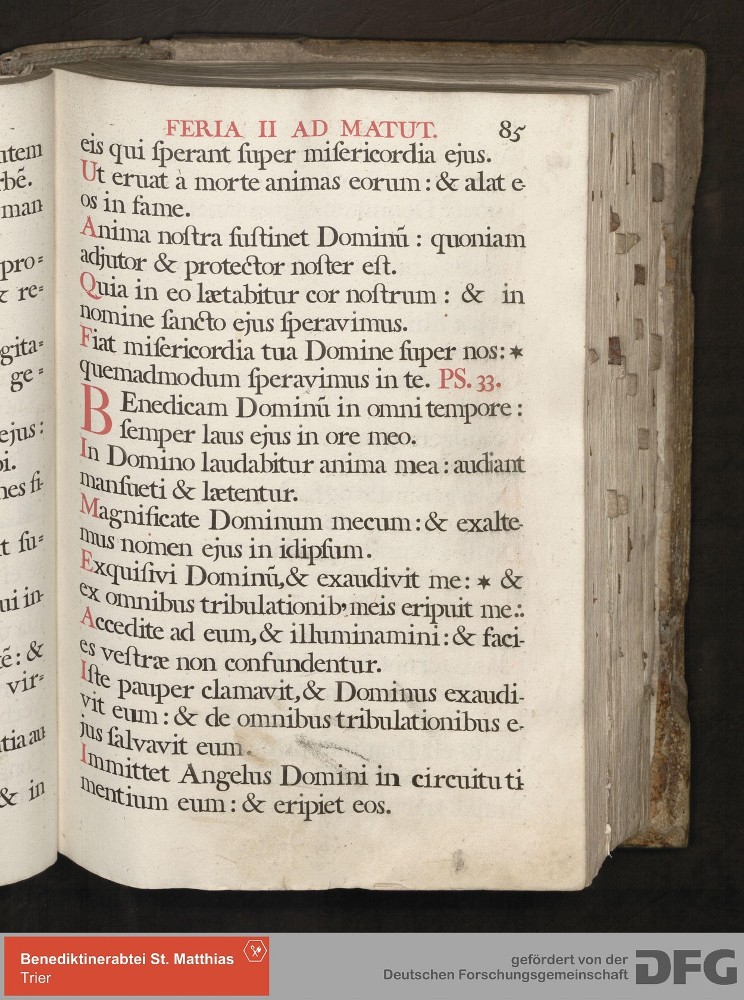 ntem
bẽ.
man
pro=
& re=
gita=
ge=
ejus:
nes ſi-
t ſu=
ui in-
ẽ: &
vir=
tia au
& in
FERIA II AD MATUT. 85
eis qui ſperant ſuper miſericordia ejus.
Ut eruat à morte animas eorum: & alat e-
os in fame.
Anima noſtra ſuſtinet Dominū : quoniam
adjutor & protector noſter eſt.
Quia in eo lætabitur cor noſtrum : & in
nomine ſancto ejus ſperavimus.
Fiat miſericordia tua Domine ſuper nos: *
quemadmodum ſperavimus in te. PS. 33.
BEnedicam Dominū in omni tempore :
ſemper laus ejus in ore meo.
In Domino laudabitur anima mea : audiant
manſueti & lætentur.
Magnificate Dominum mecum: & exalte-
mus nomen ejus in idipſum.
Exquiſivi Dominū, & exaudivit me: * &
ex omnibus tribulationib9 meis eripuit me:.
Accedite ad eum, & illuminamini: & faci-
es veſtræ non confundentur.
Iſte pauper clamavit, & Dominus exaudi-
vit eum: & de omnibus tribulationibus e-
jus ſalvavit eum.
Immittet Angelus Domini in circuitu ti
mentium eum: & eripiet eos.
Benediktinerabtei St. Matthias
Trier
gefördert von der
Deutschen Forschungsgemeinschaft
DFG